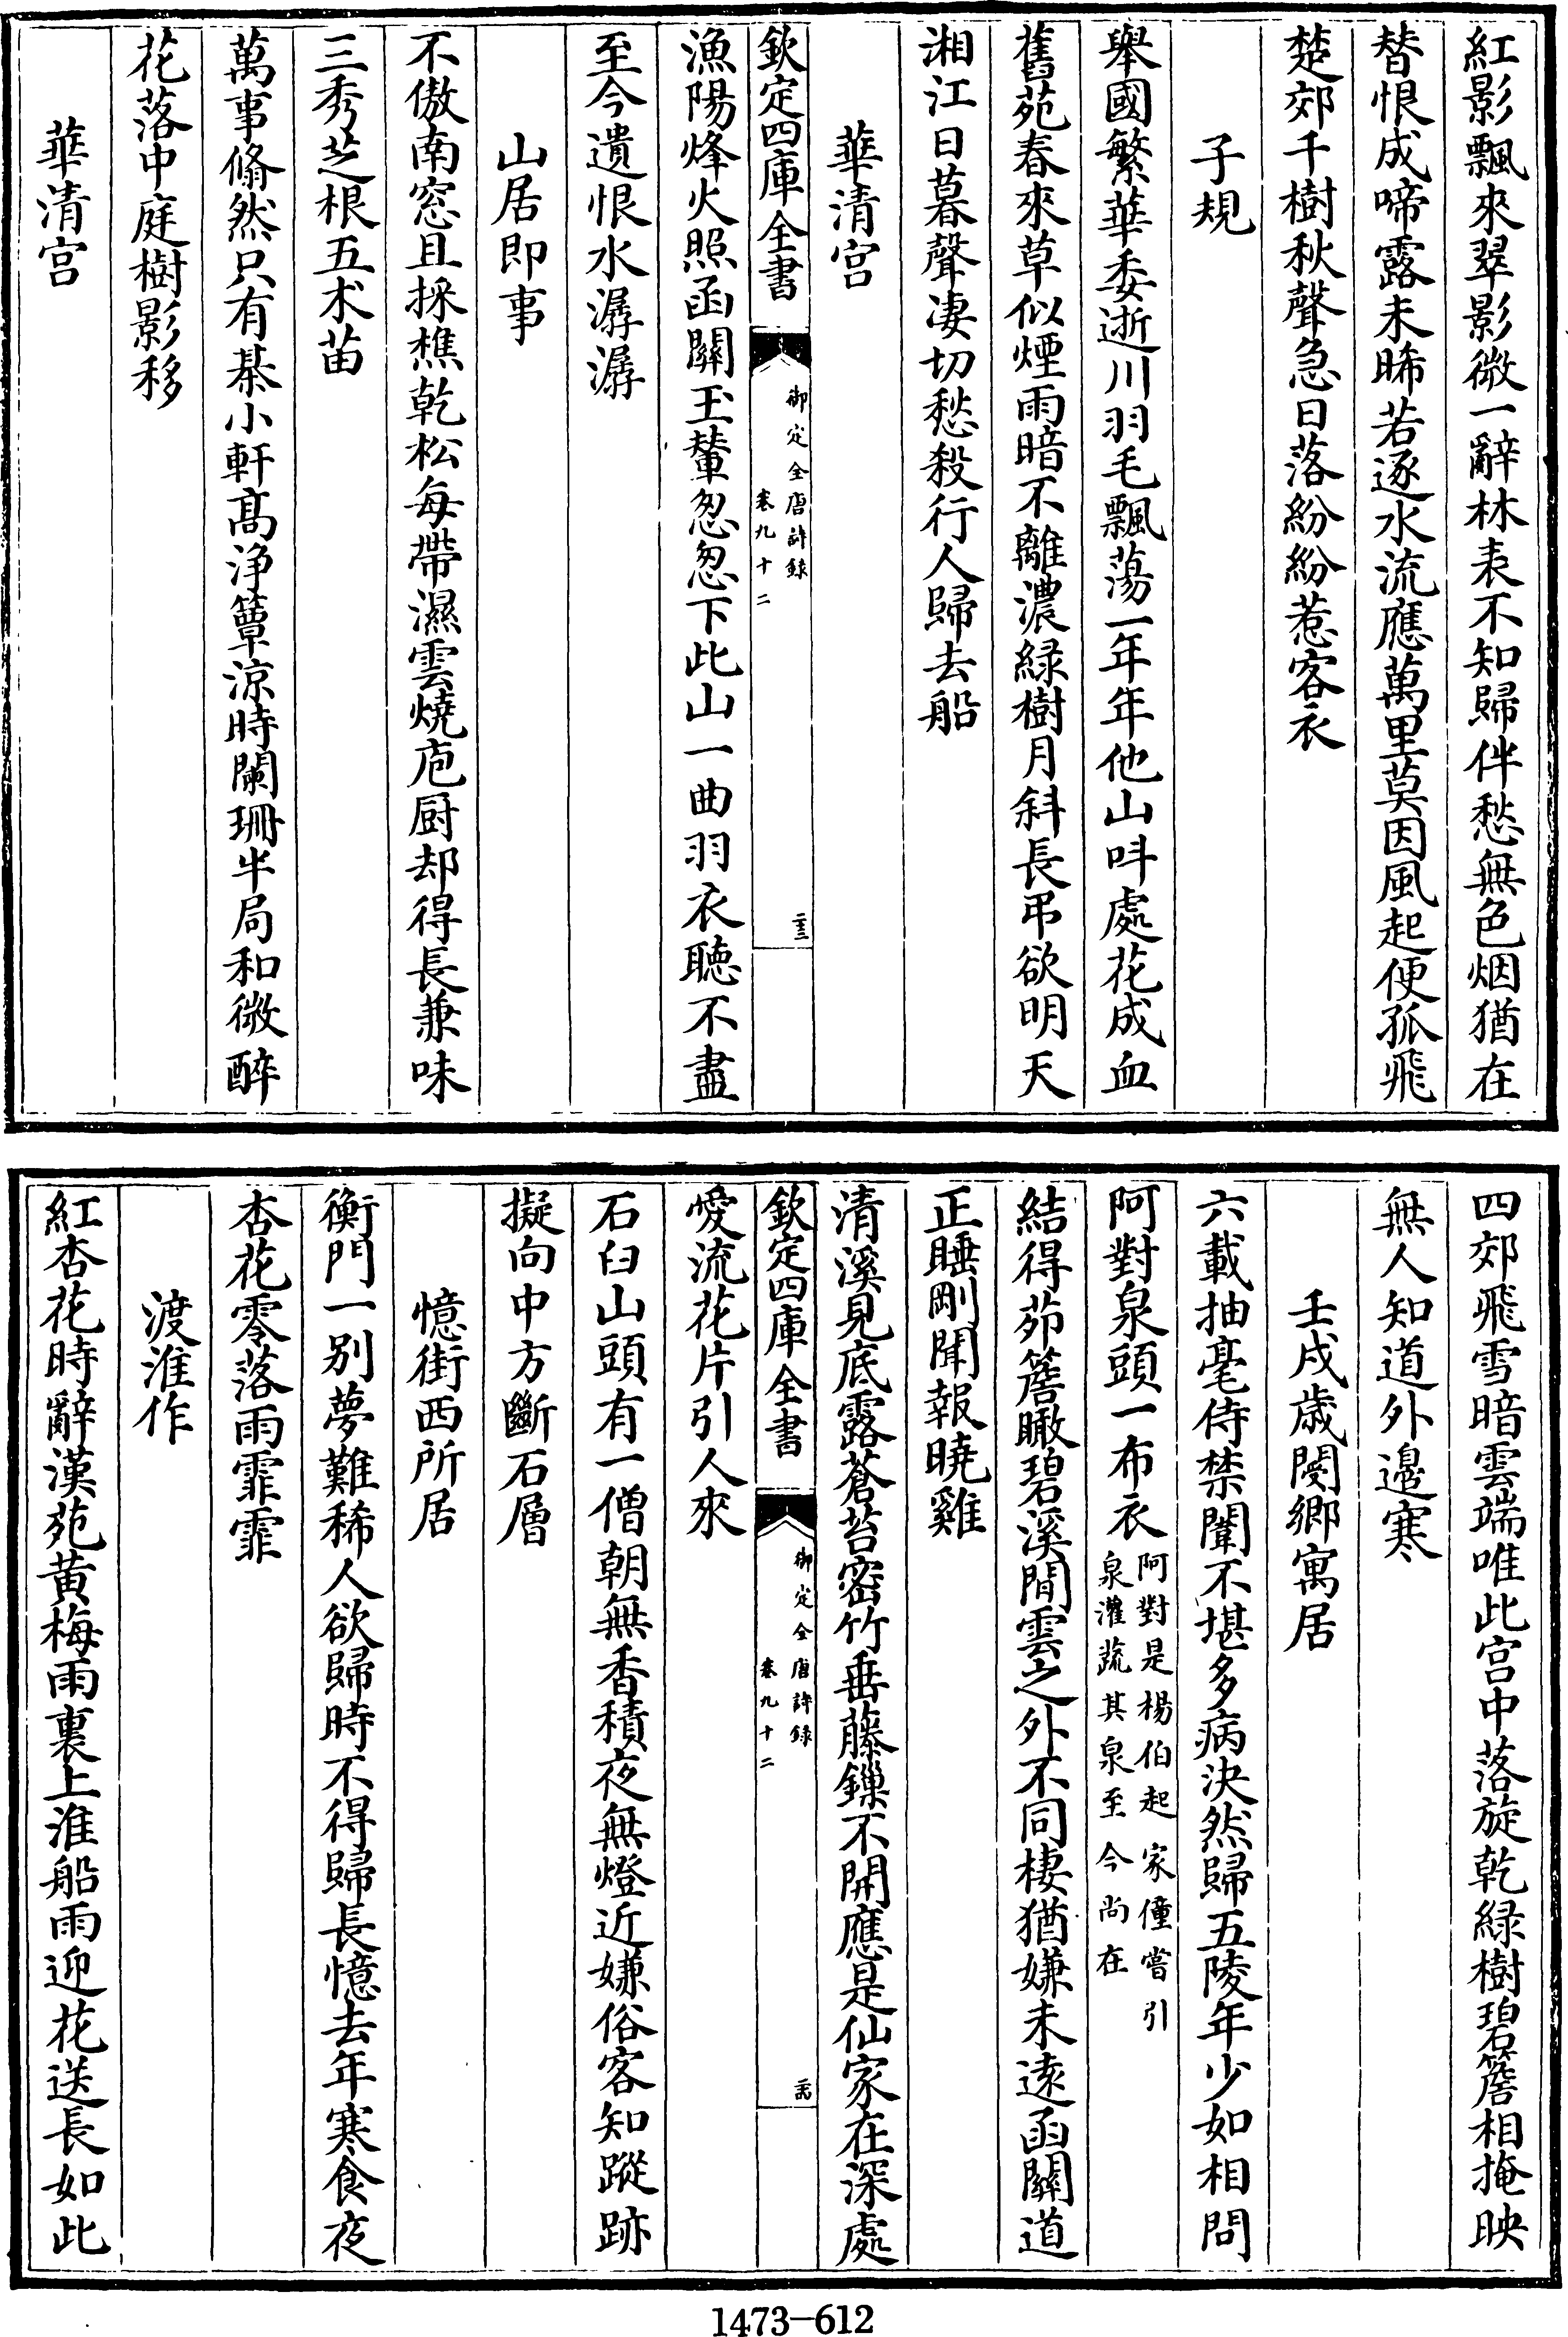 紅影飄來翠影微一辭林表不知歸伴愁無色烟猶在
替恨成啼露未晞若逐水流應萬里莫因風起便孤飛
楚郊千樹秋聲急日落紛紛惹客衣
子規
舉國繁華委逝川羽毛飄蕩一年年他山呌處花成血
舊苑春來草似煙雨暗不離濃緑樹月斜長弔欲明天
湘江日暮聲凄切愁殺行人歸去船
華清宫
欽定四庫全書
御定全唐詩録
卷九十二
二十三
漁陽烽火照函關玉輦怱怱下此山一曲羽衣聽不盡
至今遺恨水潺潺
山居即事
不傲南窓且採樵乾松每帶濕雲燒庖厨却得長兼味
三秀芝根五朮苗
萬事翛然只有棊小軒髙浄簟涼時闌珊半局和微醉
花落中庭樹影移
華清宫
四郊飛雪暗雲端唯此宫中落旋乾緑樹碧簷相掩映
無人知道外邉寒
壬戌歳閿鄉寓居
六載抽毫侍禁闈不堪多病決然歸五陵年少如相問
阿對泉頭一布衣阿對是楊伯起家僮嘗引
泉灌蔬其泉至今尚在
結得茆簷瞰碧溪閒雲之外不同棲猶嫌未逺函關道
正睡剛聞報曉雞
清溪見底露蒼苔密竹垂藤鏁不開應是仙家在深處
欽定四庫全書
御定全唐詩録
卷九十二
二十四
愛流花片引人來
石臼山頭有一僧朝無香積夜無燈近嫌俗客知蹤跡
擬向中方斷石層
憶街西所居
衡門一别夢難稀人欲歸時不得歸長憶去年寒食夜
杏花零落雨霏霏
渡淮作
紅杏花時辭漢苑黄梅雨裏上淮船雨迎花送長如此
1473—612